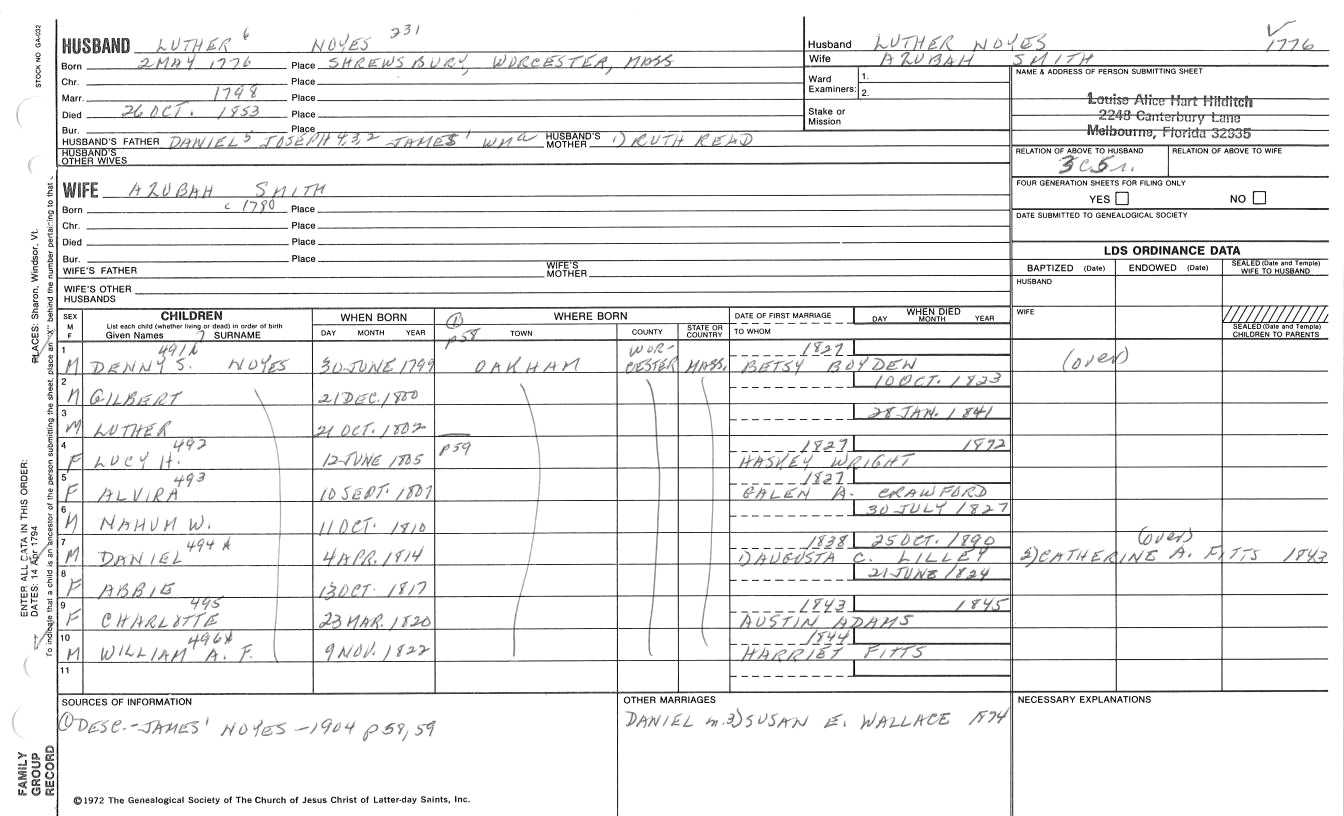 STOCK NO GA-032
HUSBAND LUTHER 6 NOYES 231
Born 2 MAY 1776 Place SHREWSBURY, WORCESTER, MASS
Chr. Place
Marr. 1798 Place
Died 26 OCT. 1853 Place
Bur. Place
HUSBAND'S FATHER DANIEL 5 JOSEPH 4,3,2 JAMES 1 WM a HUSBAND'S MOTHER 1) RUTH READ
HUSBAND'S OTHER WIVES
Husband LUTHER NOYES 1776
Wife AZUBAH SMITH
Ward Examiners: 1.
2.
Stake or Mission
NAME & ADDRESS OF PERSON SUBMITTING SHEET
Louise Alice Hart Hilditch
2248 Canterbury Lane
Melbourne, Florida 32935
RELATION OF ABOVE TO HUSBAND RELATION OF ABOVE TO WIFE
3 C 5 r.
FOUR GENERATION SHEETS FOR FILING ONLY
YES NO
DATE SUBMITTED TO GENEALOGICAL SOCIETY
WIFE AZUBAH SMITH
Born c 1780 Place
Chr. Place
Died Place
Bur. Place
WIFE'S FATHER WIFE'S MOTHER
WIFE'S OTHER HUSBANDS
LDS ORDINANCE DATA
BAPTIZED (Date) ENDOWED (Date) SEALED (Date and Temple) WIFE TO HUSBAND
HUSBAND
WIFE
SEALED (Date and Temple) CHILDREN TO PARENTS
SEX M F
CHILDREN
List each child (whether living or dead) in order of birth
Given Names 7 SURNAME
WHEN BORN
DAY MONTH YEAR
① p58
WHERE BORN
TOWN COUNTY STATE OR COUNTRY
DATE OF FIRST MARRIAGE
TO WHOM
WHEN DIED
DAY MONTH YEAR
1 M DENNY S. 491A NOYES 30 JUNE 1799 OAKHAM WORCESTER MASS. 1827 BETSY BOYDEN (over)
2 M GILBERT 21 DEC. 1800 10 OCT. 1823
3 M LUTHER 21 OCT. 1802 28 JAN. 1841
4 F LUCY H. 492 12 JUNE 1805 p59 1827 1872 HASKEY WRIGHT
5 F ALVIRA 493 10 SEPT. 1807 1827 GALEN A. CRAWFORD
6 M NAHUM W. 11 OCT. 1810 30 JULY 1827
7 M DANIEL 494 A 4 APR. 1814 1838 25 OCT. 1890 DAUGUSTA C. LILLEY (over) 2) CATHERINE A. FITTS 1843
8 F ABBIE 13 OCT. 1817 21 JUNE 1824
9 F CHARLOTTE 495 23 MAR. 1820 1843 1845 AUSTIN ADAMS
10 M WILLIAM A. F. 496A 9 NOV. 1822 1844 HARRIET FITTS
11
SOURCES OF INFORMATION
① DESC. - JAMES' NOYES - 1904 p 58, 59
OTHER MARRIAGES
DANIEL m. 3) SUSAN E. WALLACE 1874
NECESSARY EXPLANATIONS
©1972 The Genealogical Society of The Church of Jesus Christ of Latter-day Saints, Inc.
FAMILY GROUP RECORD
ENTER ALL DATA IN THIS ORDER:
DATES: 14 Apr 1794
PLACES: Sharon, Windsor, Vt.
To indicate that a child is an ancestor of the person submitting the sheet, place an "X" behind the number pertaining to that